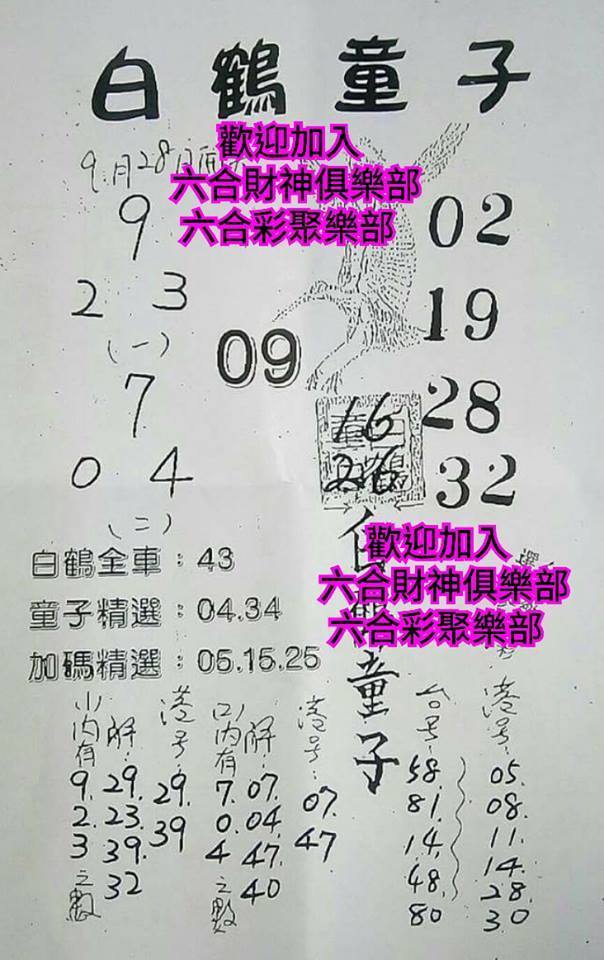 白鶴童子
歡迎加入
六合財神俱樂部
六合彩聚樂部
9月28日
9
2 3
(一)
7
0 4
(二)
09
02
19
28
32
16
26
白鶴全車：43
童子精選：04.34
加碼精選：05.15.25
歡迎加入
六合財神俱樂部
六合彩聚樂部
童子
(1)內有
9.
2.
3
之數
解：
29.
23.
39.
32
港号：
29.
39
(2)內有
7.
0.
4
之數
解：
07.
04.
47.
40
港号：
07.
47
台号：
58.
81.
14.
48.
80
港号：
05.
08.
11.
14.
28.
30